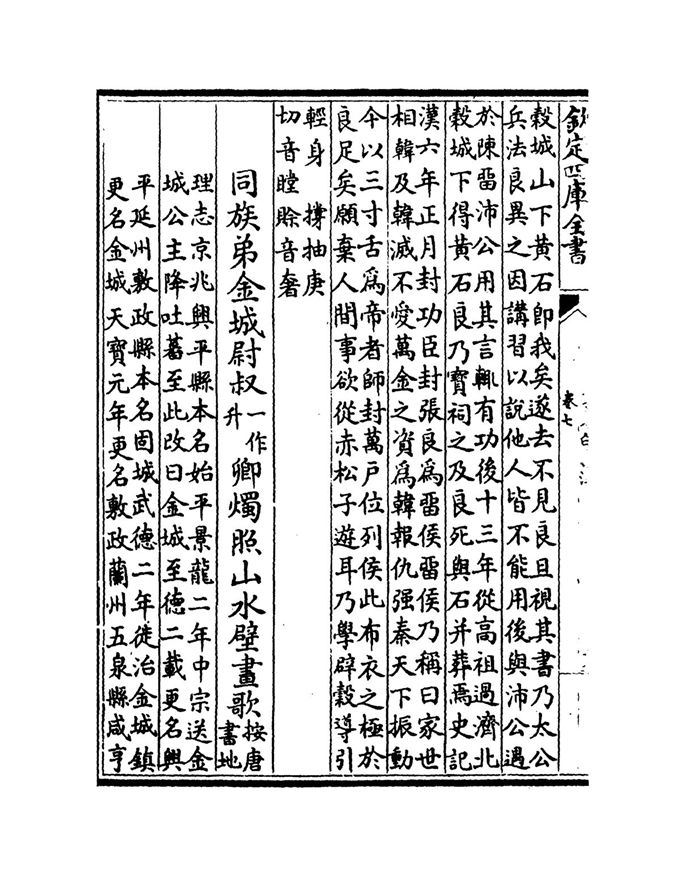 欽定四庫全書
卷七
穀城山下黃石即我矣遂去不見良且視其書乃太公
兵法良異之因講習以說他人皆不能用後與沛公遇
於陳畱沛公用其言輒有功後十三年從高祖過濟北
穀城下得黃石良乃寳祠之及良死與石并葬焉史記
漢六年正月封功臣封張良為畱侯畱侯乃稱曰家世
相韓及韓滅不愛萬金之資為韓報仇强秦天下振動
今以三寸舌為帝者師封萬戶位列侯此布衣之極於
良足矣願棄人間事欲從赤松子遊耳乃學辟穀導引
輕身 撐抽庚
切音瞠賒音奢
同族弟金城尉叔一作升卿燭照山水壁畫歌按唐書地
理志京兆興平縣本名始平景龍二年中宗送金
城公主降吐蕃至此改曰金城至德二載更名興
平延州敷政縣本名固城武德二年徙治金城鎮
更名金城天寳元年更名敷政蘭州五泉縣咸亨